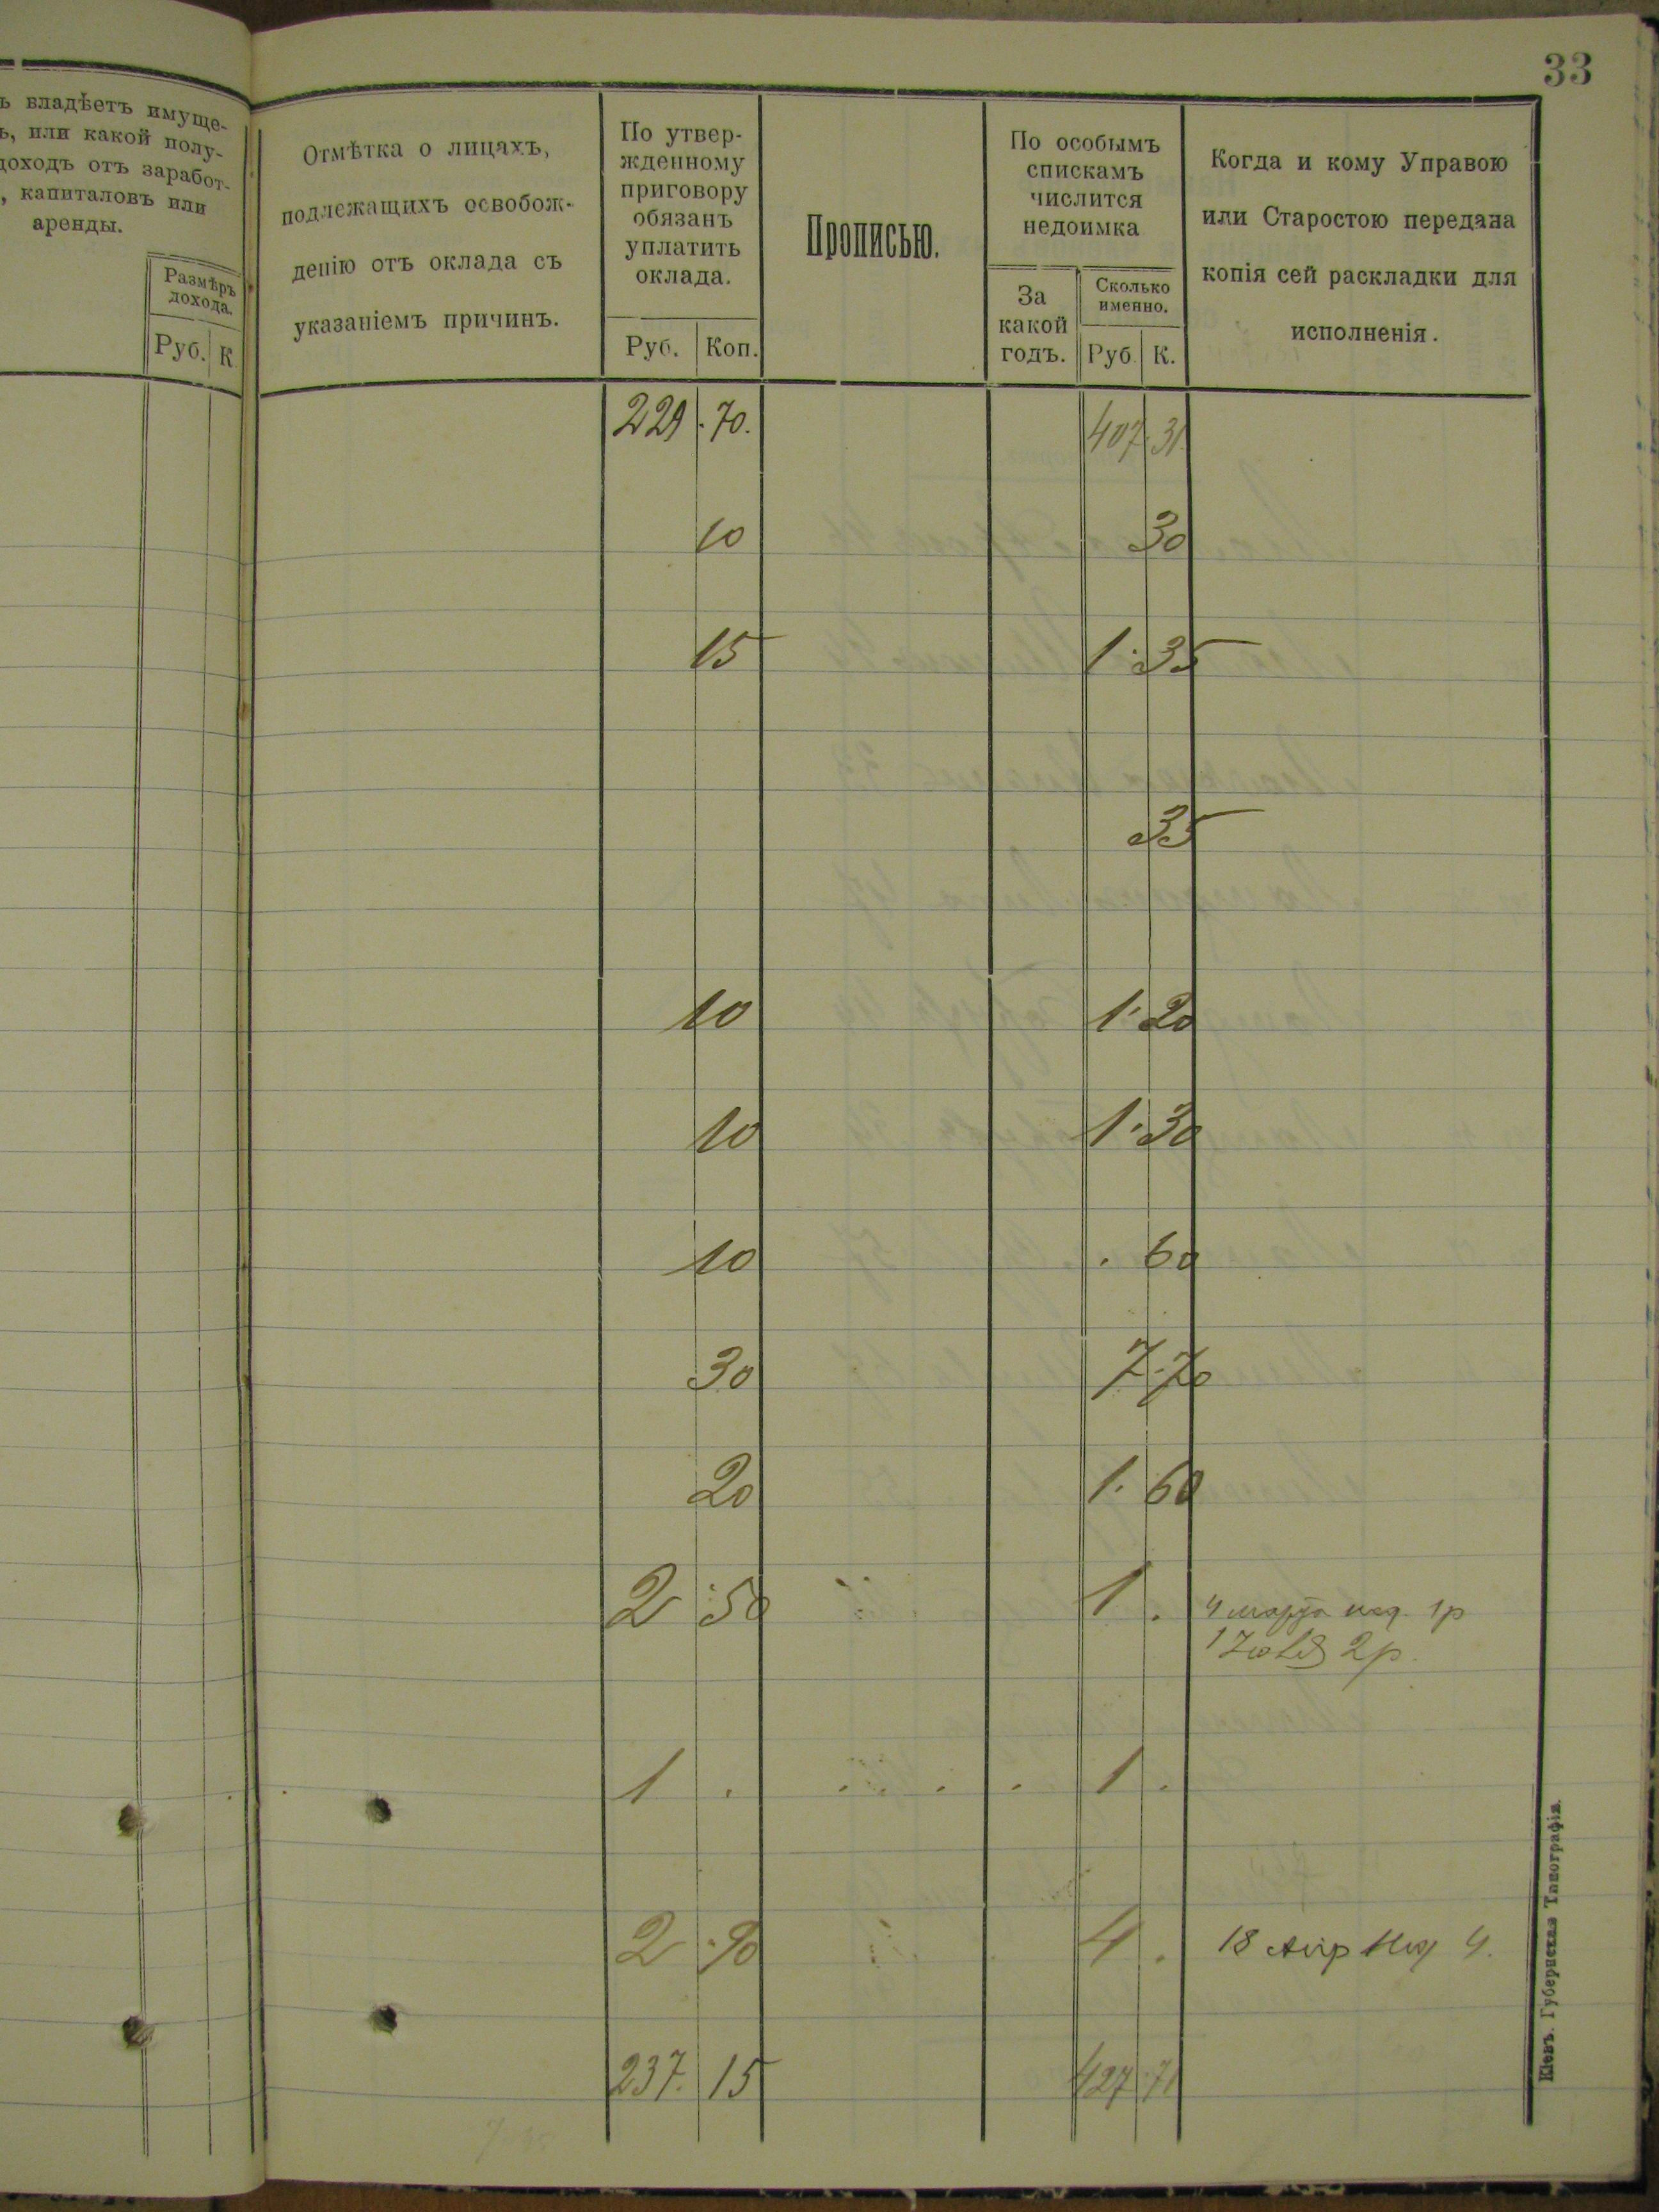 33
ъ владѣетъ имуще-
ь, или какой полу-
доходъ отъ заработ-
, капиталовъ или
аренды.
Размѣръ
дохода.
Руб. К
Отмѣтка о лицахъ,
подлежащихъ освобож-
денію отъ оклада съ
указаніемъ причинъ.
По утвер-
жденному
приговору
обязанъ
уплатить
оклада.
Руб. Коп.
Прописью.
По особымъ
спискамъ
числится
недоимка
За
какой
годъ.
Сколько
именно.
Руб. К.
Когда и кому Управою
или Старостою передана
копія сей раскладки для
исполненія.
229 . 70. 407 . 31.
10 30
15 1 . 35
35
10 1 . 20
10 1 . 30
10 . 60
30 7 . 70
20 1 . 60
2 . 50 1 . 4 марта 1р
2р.
1 . 1 .
2 . 90 4 . 18 Апр 4.
237. 15 427 . 71
Кіевъ. Губернская Типографія.